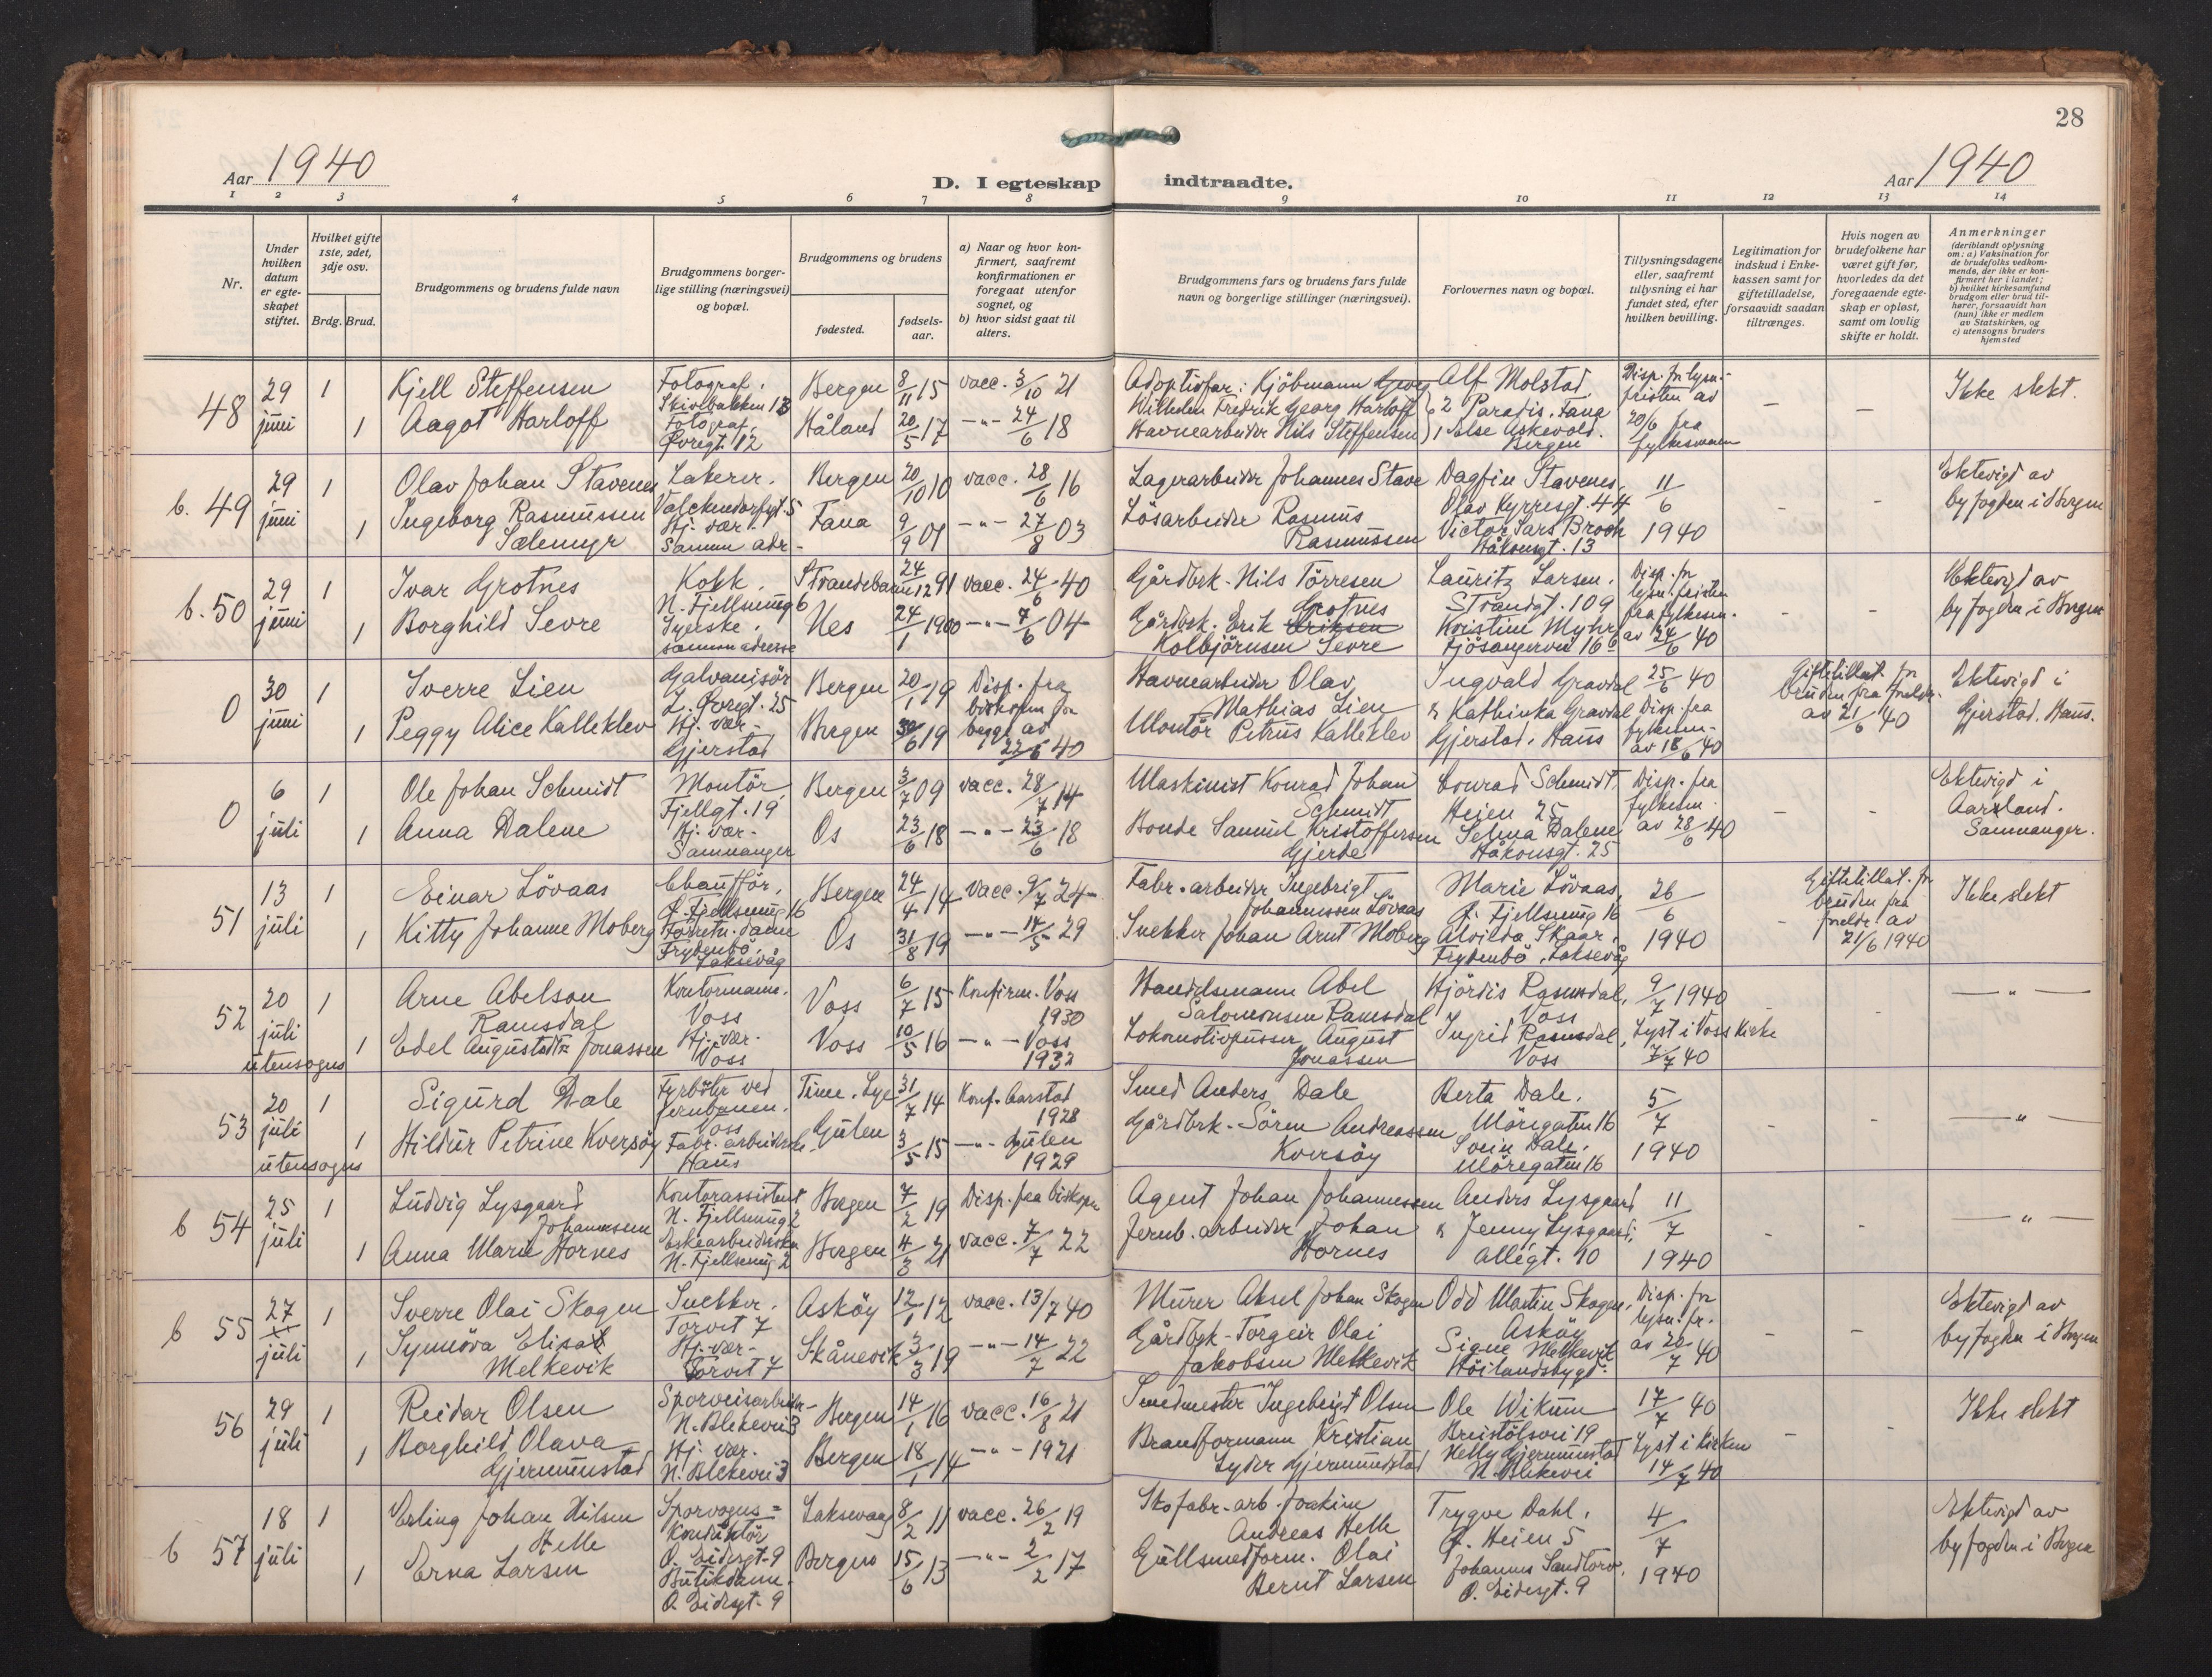 28
Aar 1940
D. I egteskap indtraadte.
Aar 1940
1 2 3 4 5 6 7 8 9 10 11 12 13 14
Nr.
Under hvilken datum er egteskapet stiftet.
Hvilket gifte 1ste, 2det, 3dje osv.
Brdg. Brud.
Brudgommens og brudens fulde navn
Brudgommens borgerlige stilling (næringsvei) og bopæl.
Brudgommens og brudens
fødested.
fødsels-aar.
a) Naar og hvor konfirmert, saafremt konfirmationen er foregaat utenfor sognet, og
b) hvor sidst gaat til alters.
Brudgommens fars og brudens fars fulde navn og borgerlige stillinger (næringsvei).
Forlovernes navn og bopæl.
Tillysningsdagene eller, saafremt tillysning ei har fundet sted, efter hvilken bevilling.
Legitimation for indskud i Enkekassen samt for giftetilladelse, forsaavidt saadan tiltrænges.
Hvis nogen av brudefolkene har været gift før, hvorledes da det foregaaende egteskap er opløst, samt om lovlig skifte er holdt.
Anmerkninger
(deriblandt oplysning om: a) Vaksination for de brudefolks vedkommende, der ikke er konfirmert her i landet; b) hvilket kirkesamfund brudgom eller brud tilhører, forsaavidt han (hun) ikke er medlem av Statskirken, og c) utensogns bruders hjemsted
48 29 juni 1 Kjell Steffensen Fotograf. Bergen 8/11 15 vacc. 3/10 21 Adoptivfar: Kjöbmann Georg Alf Molstad Disp. fr lysn.- fristen av 20/6 fra fylkesmann — — Ikke slekt.
1 Aagot Harloff Fotograf, Øvregt. 12 Håland 20/5 17 -"- 24/6 18 Wilhelm Fredrik Georg Harloff 2 Paradis. Fana
Havnearbeider Nils Steffensen 1 Else Askevold. Bergen
b. 49 29 juni 1 Olav Johan Stavenes Lakerer. Valckendorfsgt. 5 Bergen 20/10 10 vacc. 28/6 16 Lagerarbeider Johannes Stave Dagfin Stavenes, Olav Kyrresgt. 44 11/6 1940 - - Ektevigd av byfogden i Bergen
1 Ingeborg Rasmussen Sælemyr Hj. vær. Samm adr- Fana 9/9 01 -"- 27/8 03 Lösarbeider Rasmus Rasmussen Victor Lars Broch Håkonsgt. 13
b. 50 29 juni 1 Ivar Grotnes Kokk. N. Fjellsmug 6 Strandebarm 24/12 91 vacc. 24/6 40 Gårdbrk. Nils Törresen Grotnes Lauritz Larsen. Strandgt. 109 Disp. fr lysn. fristen fra fylkesm. av 24/6 40 - - Ektevigd av byfogden i Bergen
1 Borghild Sevre Syerske. samme adresse Nes 24/1 1900 -"- 7/6 04 Gårdbrk. Erik Eriksen Kolbjörnsen Sevre Kristine Myhr Fjösangervei 16
0 30 juni 1 Sverre Lien Galvanisör L. Øvregt. 25 Bergen 20/1 19 Disp. fra biskopen for begge av 22/6 40 Havnearbeider Olav Mathias Lien Ingvald Gravdal 25/6 40 Giftetillat. for bruden fra foreldr. av 21/6 40 Ektevigd i Gjerstad. Haus.
1 Peggy Alice Kalleklev Hj. vær- Gjerstad Bergen 30/6 19 Montör Petrus Kalleklev & Kathinka Gravdal Gjerstad. Haus Disp. fra fylkesm.- av 18/6 40
0 6 juli 1 Ole Johan Schmidt Montör, Fjellgt. 19 Bergen 3/7 09 vacc. 28/7 14 Maskinist Konrad Johan Schmidt Conrad Schmidt, Heien 25 Disp. fra fylkesm. av 28/6 40 - - Ektevigd i Aarland. Samnanger.
1 Anna Dalene Hj. vær- Samnanger Os 23/6 18 -"- 23/6 18 Bonde Samuel Kristoffersen Gjerde Selma Dalene Håkonsgt. 25
51 13 juli 1 Einar Lövaas Chauffør, Ø. Fjellsmug 16 Bergen 24/4 14 vacc. 9/7 24 Fabr. arbeider Ingebrigt Johannessen Lövaas Marie Lövaas, Ø. Fjellsmug 16 26/6 1940 - Giftetillat. fr bruden fra foreldr. av 21/6 1940 Ikke slekt
1 Kitty Johanne Moberg Forretn. dame Frydenbö, Laksevåg Os 31/8 19 -"- 14/5 29 Snekker Johan Arnt Moberg Alvilda Skaar. Frydenbö, Laksevåg
52 20 juli utensogns 1 Arne Abelson Ramsdal Kontormann. Voss Voss 6/7 15 Konfirm. Voss 1930 Handelsmann Abel Salomonsen Ramsdal Hjördis Ramsdal, Voss 9/7 1940 - - —"—
1 Edel Augustdtr Jonassen Hj. vær. Voss Voss 10/5 16 -"- Voss 1932 Lokomotivpusser August Jonassen Ingrid Ramsdal, Voss Lyst i Voss Kirke 7/7 40
53 20 juli utensogns 1 Sigurd Dale Fyrböter ved jernbanen. Voss Time. Lye 31/7 14 Konf. 1928 Smed Anders Dale Berta Dale. Möregaten 16 5/7 1940 - - —"—
1 Hildur Petrine Kversöy Fabr. arbeiderske. Haus Gulen 3/5 15 -"- Gulen 1929 Gårdbrk. Sören Andreassen Kversöy Svein Dale. Möregaten 16
b 54 25 juli 1 Ludvig Lysgaard Johannessen Kontorassistent N. Fjellsmug 2 Bergen 7/2 19 Disp. fra biskopen Agent Johan Johannessen Anders Lysgaard 11/7 1940 - - —"—
1 Anna Marie Hornes Eskearbeiderske N. Fjellsmug 2 Bergen 4/3 21 vacc. 7/7 22 Jernb. arbeider Johan Hornes & Jenny Lysgaard, Allégt. 10
b 55 27 juli 1 Sverre Olai Skogen Snekker. Torvet 7 Asköy 12/1 12 vacc. 13/7 40 Murer Aksel Johan Skogen Odd Martin Skogen, Asköy Disp. fr lysn. fr. av 20/7 40 - - Ektevigd av byfogden i Bergen
1 Synnöva Elisa Melkevik Hj. vær- Torvet 7 Skånevik 3/3 19 -"- 14/7 22 Gårdbrk- Torgeir Olai Jakobsen Melkevik Signe Melkevik Höilandsbygd.
56 29 juli 1 Reidar Olsen Sporveisarbeider N. Blekevei 3 Bergen 14/1 16 vacc. 16/8 21 Smedmester Ingebrigt Olsen Ole Wikum Breistölsvei 19 17/7 40 - - Ikke slekt
1 Borghild Olava Gjermundstad Hj. vær. N. Blekevei 3 Bergen 18/1 14 -"- 1921 Brandformann Kristian Lyder Gjermundstad Nelly Gjermundstad N. Blekevei Lyst i Kirken 14/7 40
b 57 18 juli 1 Erling Johan Nilsen Helle Sporvogns= konduktör Ø. Eidesgt- 9 Laksevaag 8/2 11 vacc. 26/2 19 Skofabr- arb. Joakim Andreas Helle Trygve Dahl. Ø. Heien 5 4/7 1940 Ektevigd av byfogden i Bergen
1 Erna Larsen Butikdame. Ø. Eidesgt- 9 Bergen 15/6 13 -"- 2/2 17 Gullsmedform. Olai Bernt Larsen Johannes Sandtorv, Ø. Eidesgt. 9